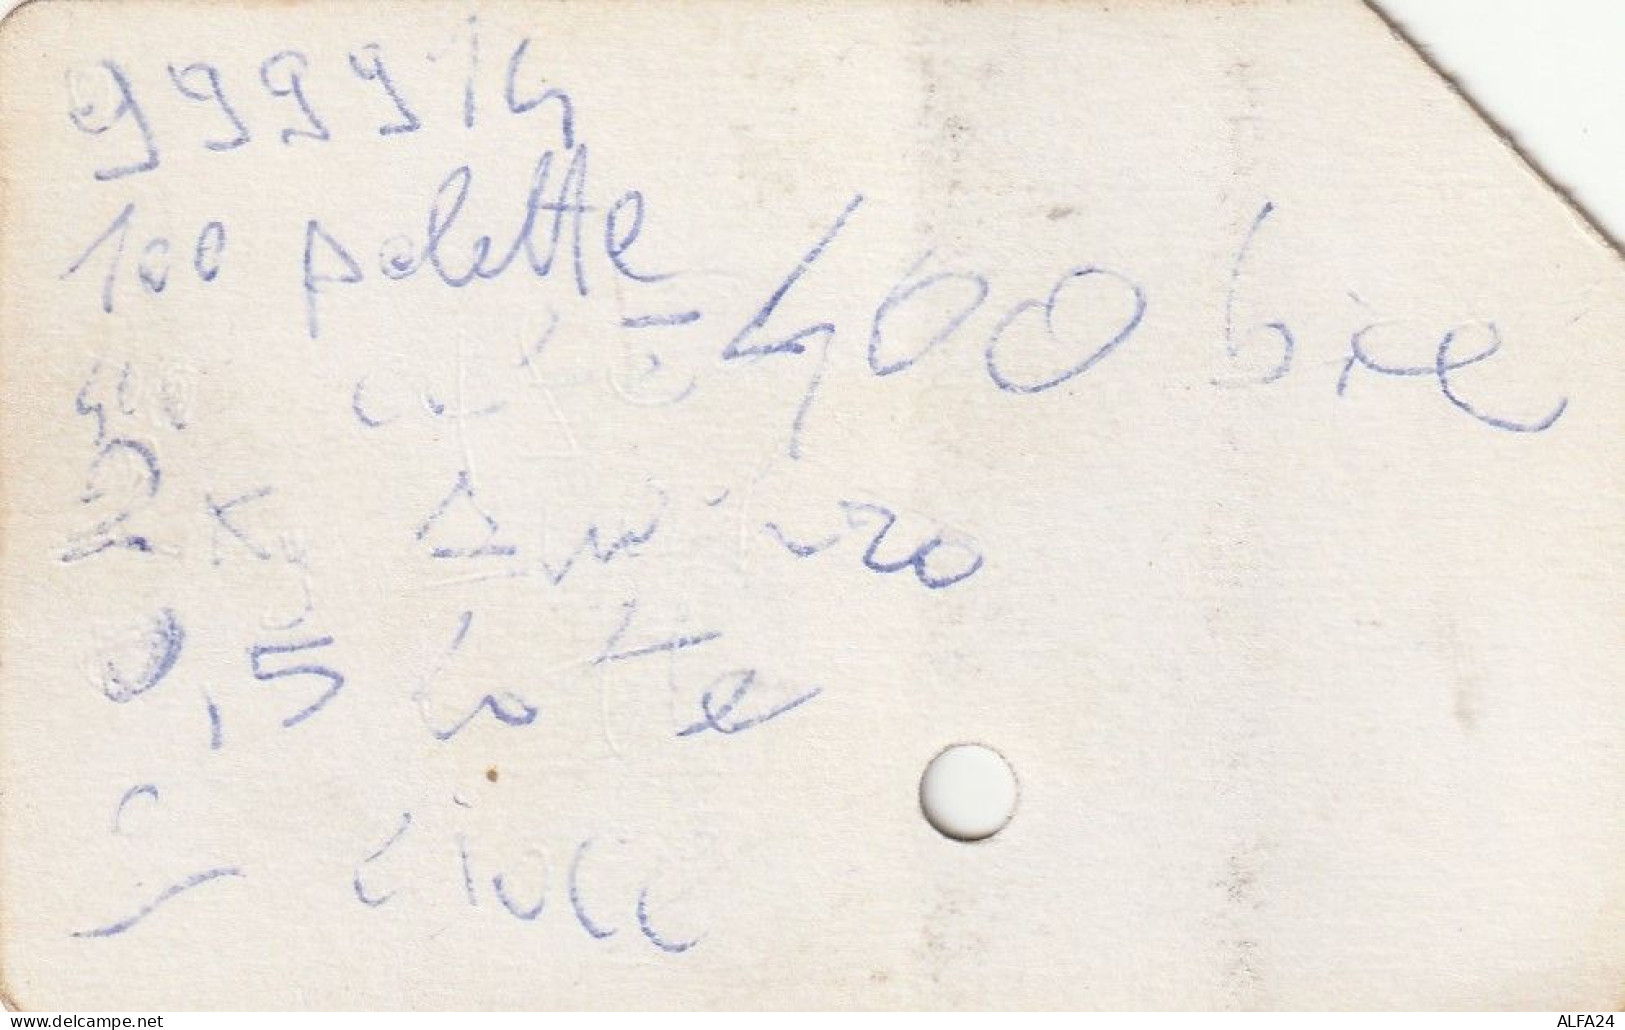 999914
100 palette
400 bic
400
2 Kg
0,5 latte
2 ciocc
www.delcampe.net
ALFA24